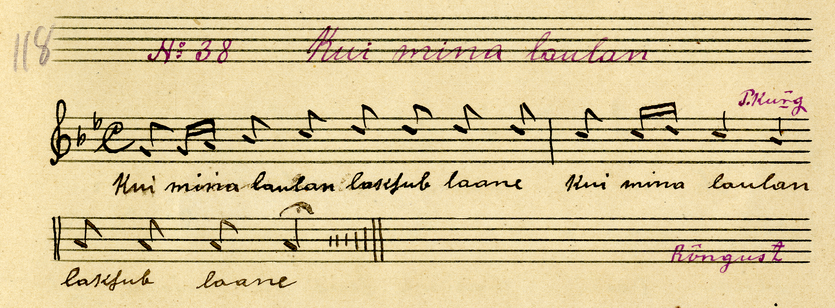 118
No: 38 Kui mina laulan
P. Kurg
Kui mina laulan laksub laane Kui mina laulan
laksub laane
Rõngust